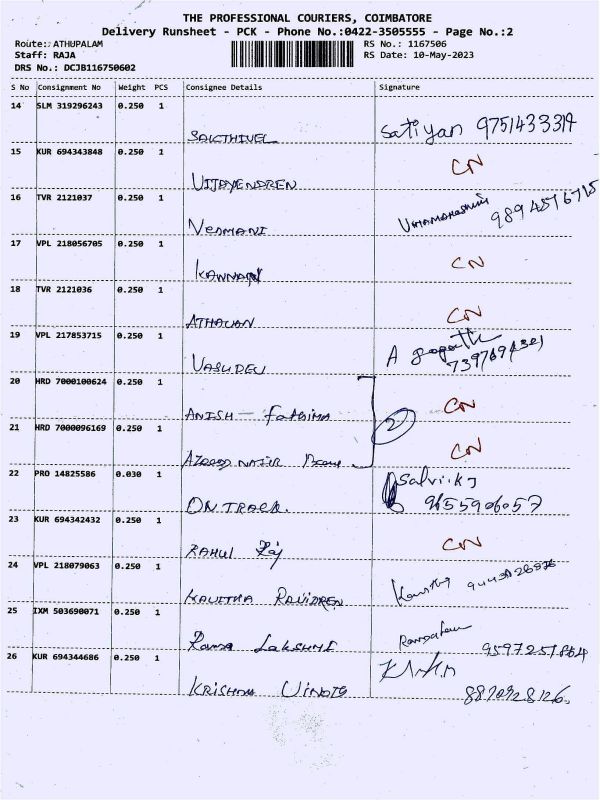 THE PROFESSIONAL COURIERS, COIMBATORE
Delivery Runsheet - PCK - Phone No.:0422-3505555 - Page No.:2
Route: ATHUPALAM RS No.: 1167506
Staff: RAJA RS Date: 10-May-2023
DRS No.: DCJB116750602
S No Consignment No Weight PCS Consignee Details Signature
14 SLM 319296243 0.250 1
SAKTHIVEL Satiyan 9751433314
15 KUR 694343848 0.250 1 CN
VIJAYENDREN
16 TVR 2121037 0.250 1
VEDMANI 9894576715
17 VPL 218056705 0.250 1 CN
KANNAN
18 TVR 2121036 0.250 1 CN
ATHAVAN
19 VPL 217853715 0.250 1 A
VASUDEV
20 HRD 7000100624 0.250 1 CN
ANISH FATHIMA 2
21 HRD 7000096169 0.250 1 CN
NAJIR
22 PRO 14825586 0.030 1
ON TRACK. 9655906057
23 KUR 694342432 0.250 1 CN
RAHUL Raj
24 VPL 218079063 0.250 1
KAVITHA RAVIDREN
25 IXM 503690071 0.250 1
Rama LAKSHMI 9597251864
26 KUR 694344686 0.250 1
KRISHNA 8870928126.